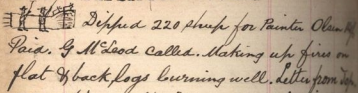 Dipped 220 sheep for Painter Olsen
Paid. G McLeod called. Making up fires on
flat & back logs burning well. Letter from